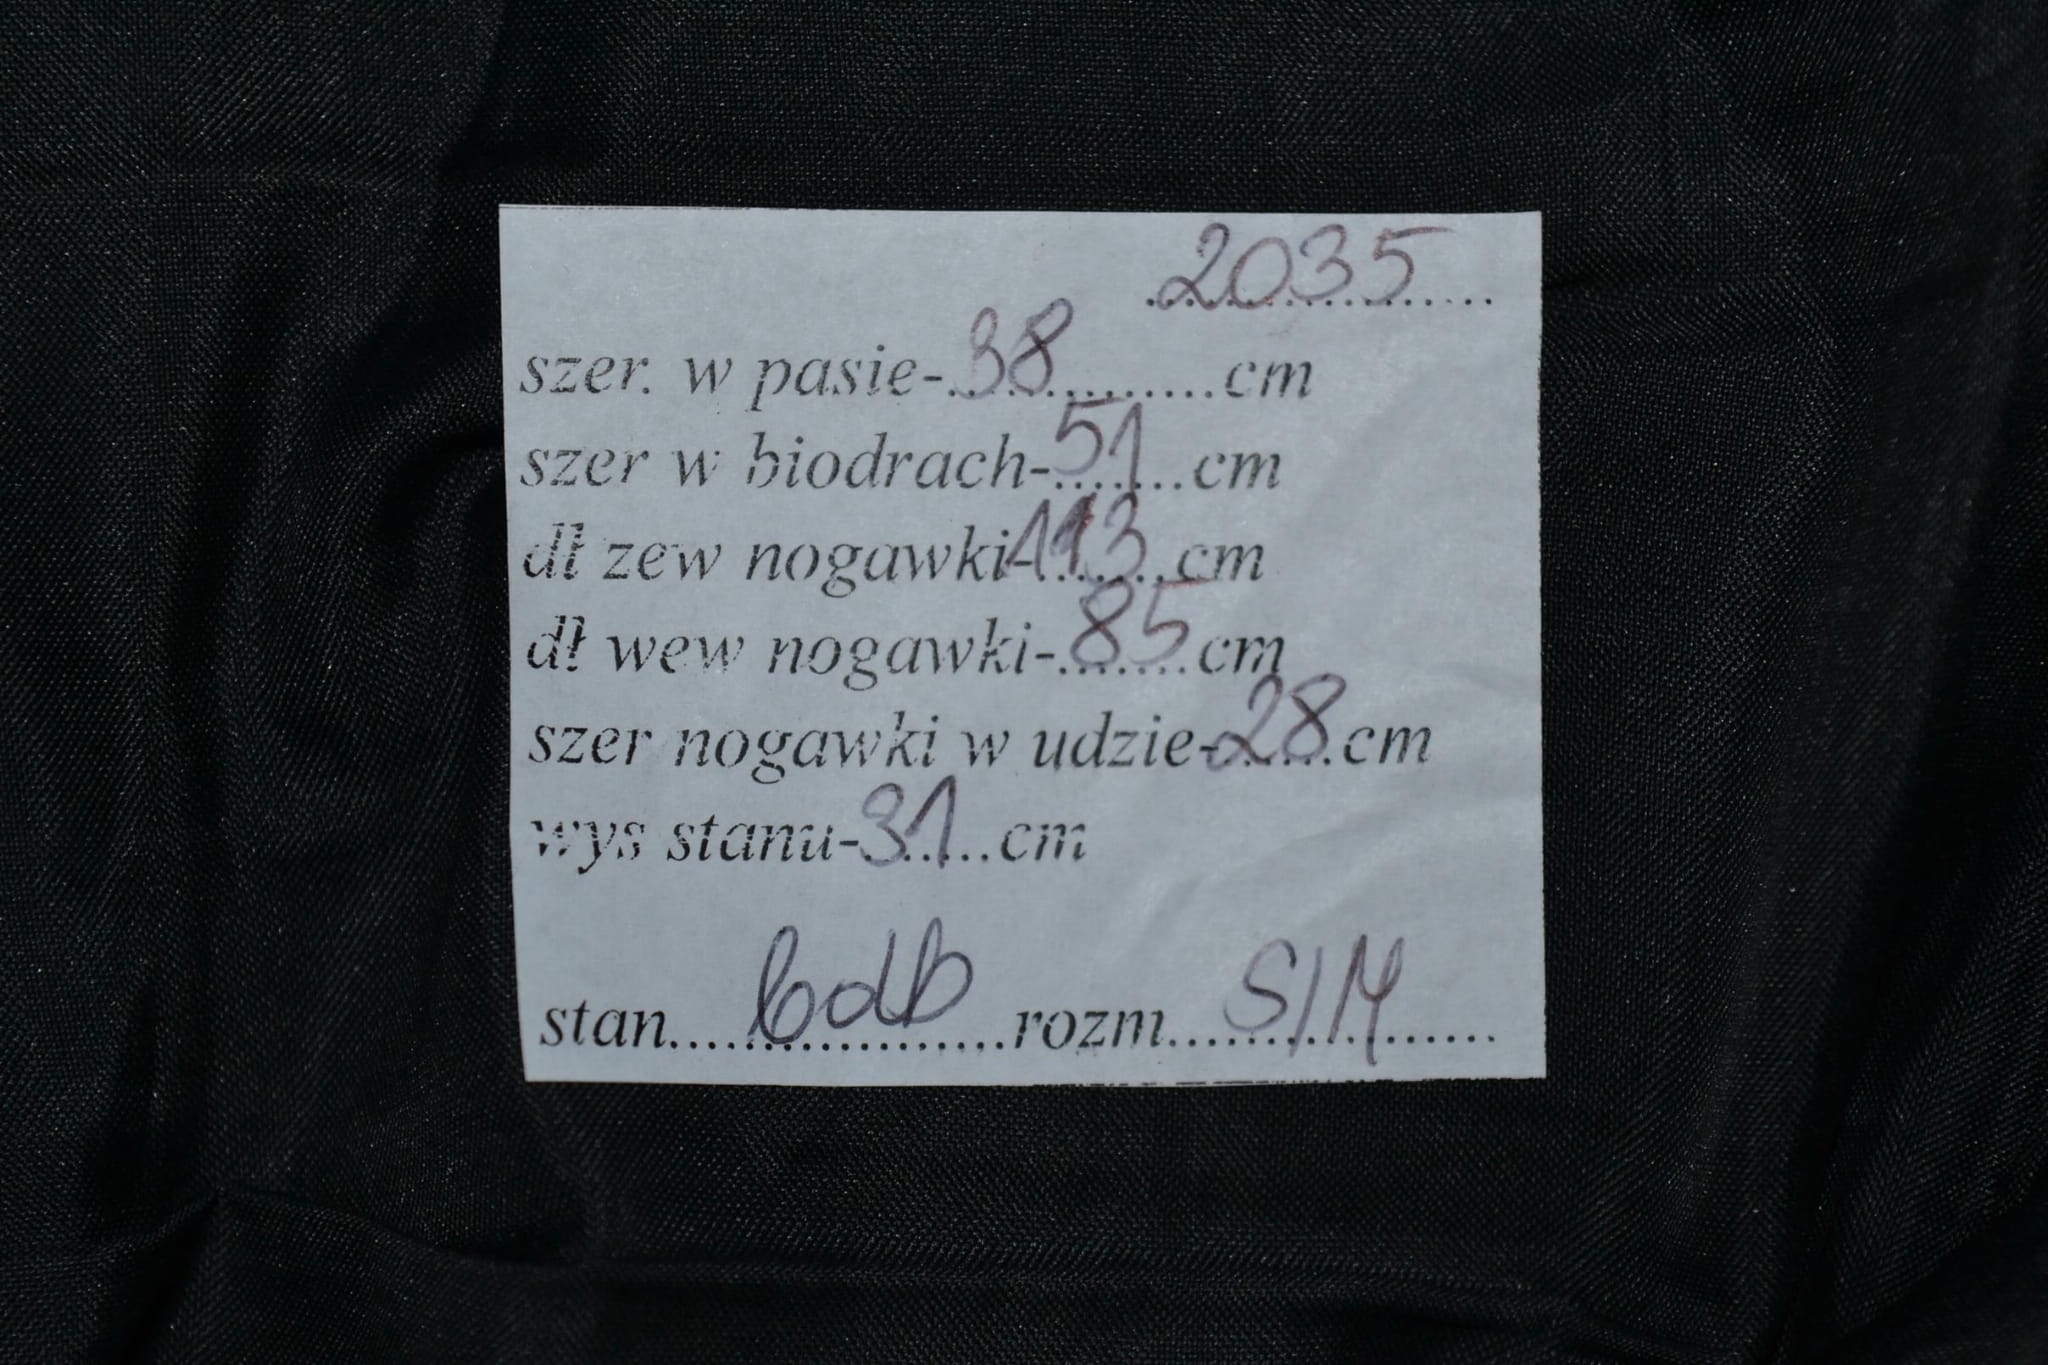 2035
szer. w pasie-38cm
szer w biodrach-51cm
dł zew nogawki-113cm
dł wew nogawki-85cm
szer nogawki w udzie-28cm
wys stanu-31cm
stan bdb rozm S/M